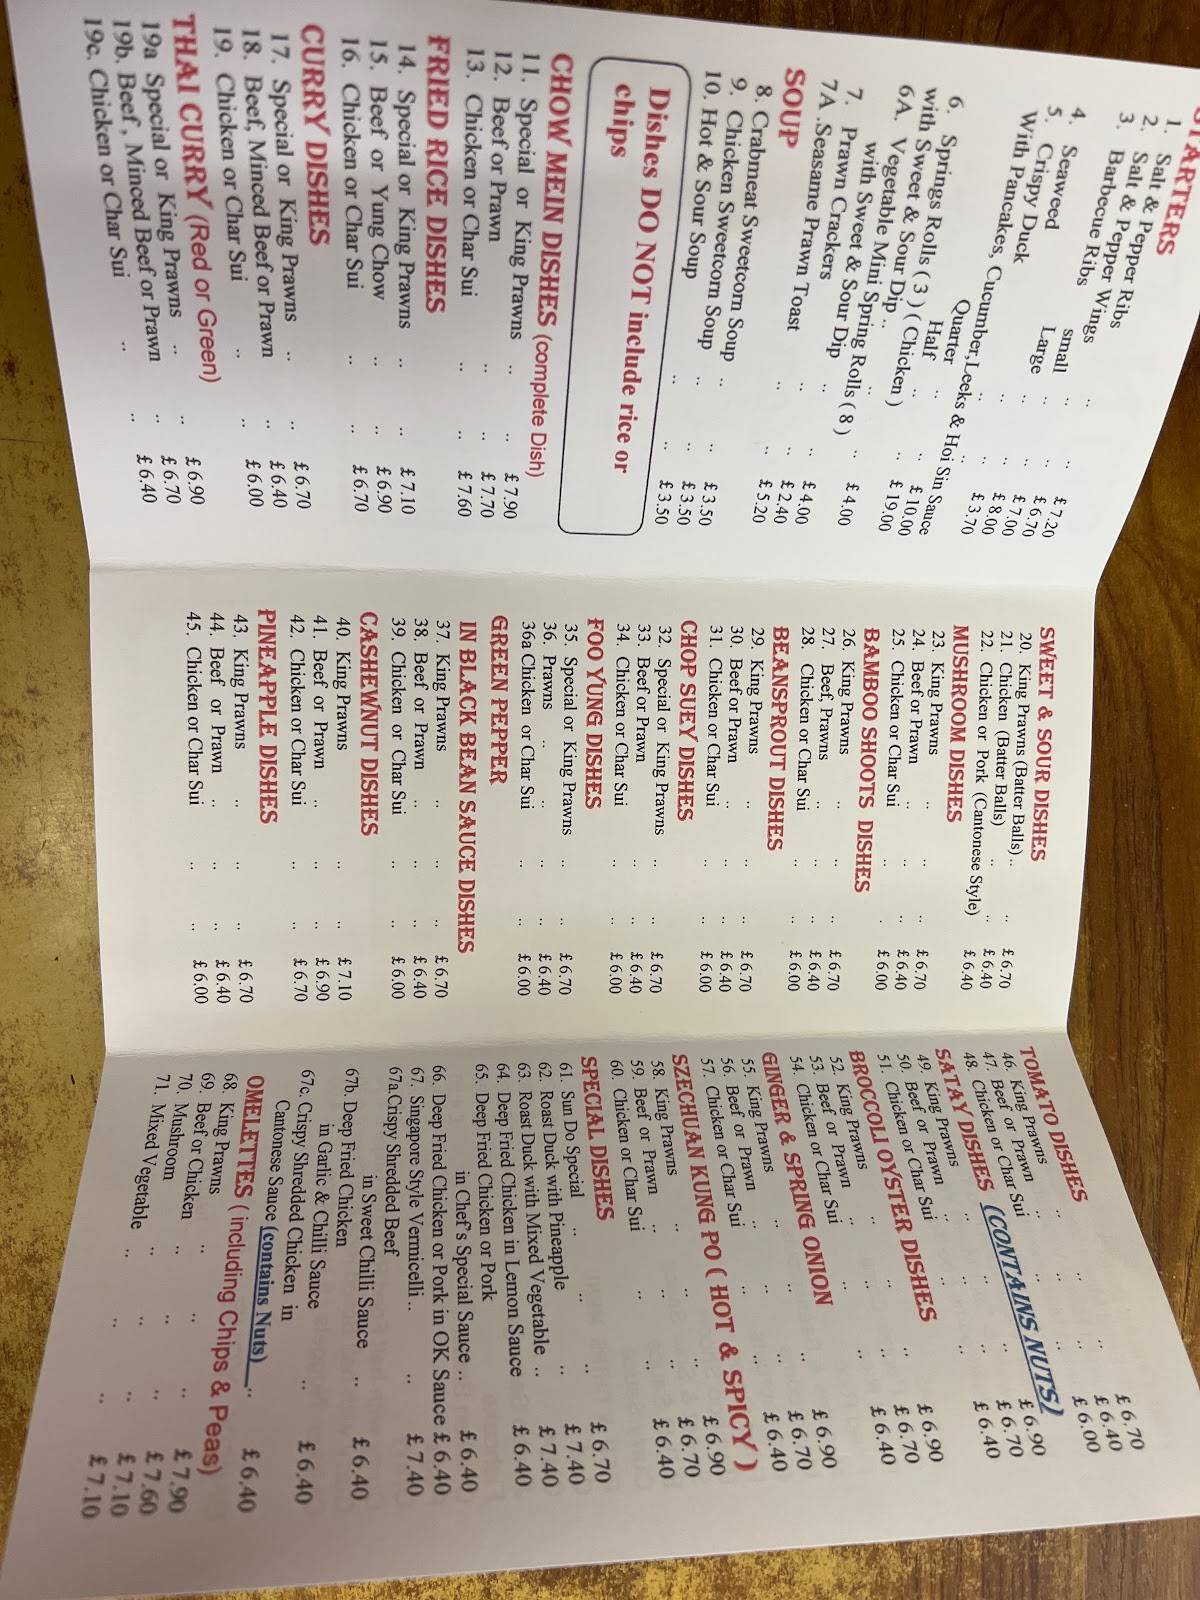 STARTERS
1. Salt & Pepper Ribs .. £ 7.20
2. Salt & Pepper Wings .. .. £ 6.70
3. Barbecue Ribs small .. .. £ 7.00
Large .. .. £ 8.00
4. Seaweed .. .. £ 3.70
5. Crispy Duck
With Pancakes, Cucumber,Leeks & Hoi Sin Sauce
Quarter .. .. £ 10.00
Half .. .. £ 19.00
6. Springs Rolls ( 3 ) ( Chicken )
with Sweet & Sour Dip .. .. .. £ 4.00
6A. Vegetable Mini Spring Rolls ( 8 )
with Sweet & Sour Dip .. .. £ 4.00
7. Prawn Crackers .. .. £ 2.40
7A .Seasame Prawn Toast .. .. £ 5.20
SOUP
8. Crabmeat Sweetcorn Soup .. .. £ 3.50
9. Chicken Sweetcorn Soup .. .. £ 3.50
10. Hot & Sour Soup .. .. £ 3.50
Dishes DO NOT include rice or
chips
CHOW MEIN DISHES (complete Dish)
11. Special or King Prawns .. .. £ 7.90
12. Beef or Prawn .. .. £ 7.70
13. Chicken or Char Sui .. .. £ 7.60
FRIED RICE DISHES
14. Special or King Prawns .. .. £ 7.10
15. Beef or Yung Chow .. .. £ 6.90
16. Chicken or Char Sui .. .. £ 6.70
CURRY DISHES
17. Special or King Prawns .. .. £ 6.70
18. Beef, Minced Beef or Prawn .. £ 6.40
19. Chicken or Char Sui .. .. £ 6.00
THAI CURRY (Red or Green)
19a Special or King Prawns .. .. £ 6.90
19b. Beef , Minced Beef or Prawn .. £ 6.70
19c. Chicken or Char Sui .. .. £ 6.40
SWEET & SOUR DISHES
20. King Prawns (Batter Balls) .. .. £ 6.70
21. Chicken (Batter Balls) .. .. £ 6.40
22. Chicken or Pork (Cantonese Style) £ 6.40
MUSHROOM DISHES
23. King Prawns .. .. .. £ 6.70
24. Beef or Prawn .. .. .. £ 6.40
25. Chicken or Char Sui .. . £ 6.00
BAMBOO SHOOTS DISHES
26. King Prawns .. .. .. £ 6.70
27. Beef, Prawns .. .. .. £ 6.40
28. Chicken or Char Sui .. .. £ 6.00
BEANSPROUT DISHES
29. King Prawns .. .. .. £ 6.70
30. Beef or Prawn .. .. .. £ 6.40
31. Chicken or Char Sui .. .. £ 6.00
CHOP SUEY DISHES
32. Special or King Prawns .. .. £ 6.70
33. Beef or Prawn .. .. .. £ 6.40
34. Chicken or Char Sui .. .. £ 6.00
FOO YUNG DISHES
35. Special or King Prawns .. .. £ 6.70
36. Prawns .. .. .. .. £ 6.40
36a Chicken or Char Sui .. .. £ 6.00
GREEN PEPPER
IN BLACK BEAN SAUCE DISHES
37. King Prawns .. .. .. £ 6.70
38. Beef or Prawn .. .. .. £ 6.40
39. Chicken or Char Sui .. .. £ 6.00
CASHEWNUT DISHES
40. King Prawns .. .. .. £ 7.10
41. Beef or Prawn .. .. .. £ 6.90
42. Chicken or Char Sui .. .. £ 6.70
PINEAPPLE DISHES
43. King Prawns .. .. .. £ 6.70
44. Beef or Prawn .. .. .. £ 6.40
45. Chicken or Char Sui .. .. £ 6.00
TOMATO DISHES
46. King Prawns .. .. .. £ 6.70
47. Beef or Prawn .. .. .. £ 6.40
48. Chicken or Char Sui .. .. £ 6.00
SATAY DISHES (CONTAINS NUTS)
49. King Prawns .. .. .. £ 6.90
50. Beef or Prawn .. .. .. £ 6.70
51. Chicken or Char Sui .. .. £ 6.40
BROCCOLI OYSTER DISHES
52. King Prawns .. .. .. £ 6.90
53. Beef or Prawn .. .. .. £ 6.70
54. Chicken or Char Sui .. .. £ 6.40
GINGER & SPRING ONION
55. King Prawns .. .. .. £ 6.90
56. Beef or Prawn .. .. .. £ 6.70
57. Chicken or Char Sui .. .. £ 6.40
SZECHUAN KUNG PO ( HOT & SPICY )
58. King Prawns .. .. .. £ 6.90
59. Beef or Prawn .. .. .. £ 6.70
60. Chicken or Char Sui .. .. £ 6.40
SPECIAL DISHES
61. Sun Do Special .. .. .. £ 6.70
62. Roast Duck with Pineapple .. £ 7.40
63. Roast Duck with Mixed Vegetable .. £ 7.40
64. Deep Fried Chicken in Lemon Sauce £ 6.40
65. Deep Fried Chicken or Pork
in Chef's Special Sauce .. £ 6.40
66. Deep Fried Chicken or Pork in OK Sauce £ 6.40
67. Singapore Style Vermicelli .. .. £ 7.40
67a.Crispy Shredded Beef
in Sweet Chilli Sauce .. £ 6.40
67b. Deep Fried Chicken
in Garlic & Chilli Sauce .. £ 6.40
67c. Crispy Shredded Chicken in
Cantonese Sauce (contains Nuts) .. £ 6.40
OMELETTES ( including Chips & Peas)
68. King Prawns .. .. .. £ 7.90
69. Beef or Chicken .. .. .. £ 7.60
70. Mushroom .. .. .. £ 7.10
71. Mixed Vegetable .. .. .. £ 7.10